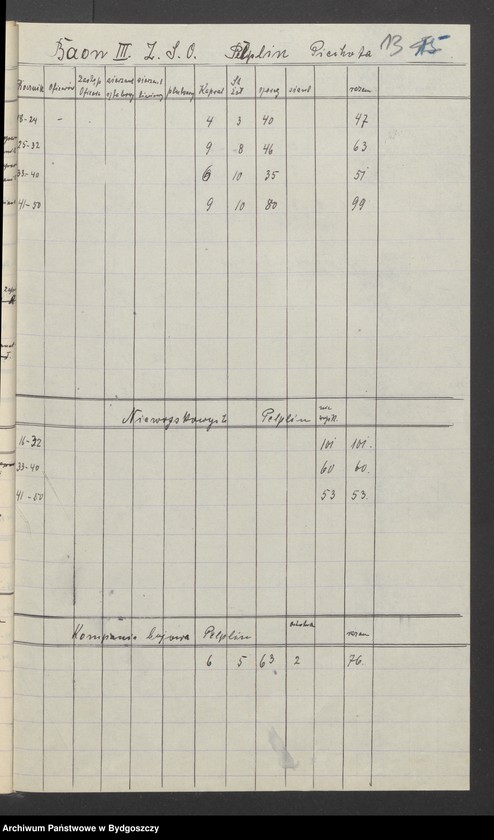 Baon III. Z. S. O. Pelplin Piechota 13
Rocznik oficerow Zastęp. Oficer. sierżant sztabowy sierżant plutonowy Kapral St. żoł. szereg. razem
18-24 - 4 3 40 47
25-32 9 8 46 63
33-40 6 10 35 51
41-50 9 10 80 99
Niewojskowych Pelplin
16-32 101 101.
33-40 60 60.
41-50 53 53.
Kompania bojowa Pelplin razem
6 5 63 2 76.
Archiwum Państwowe w Bydgoszczy